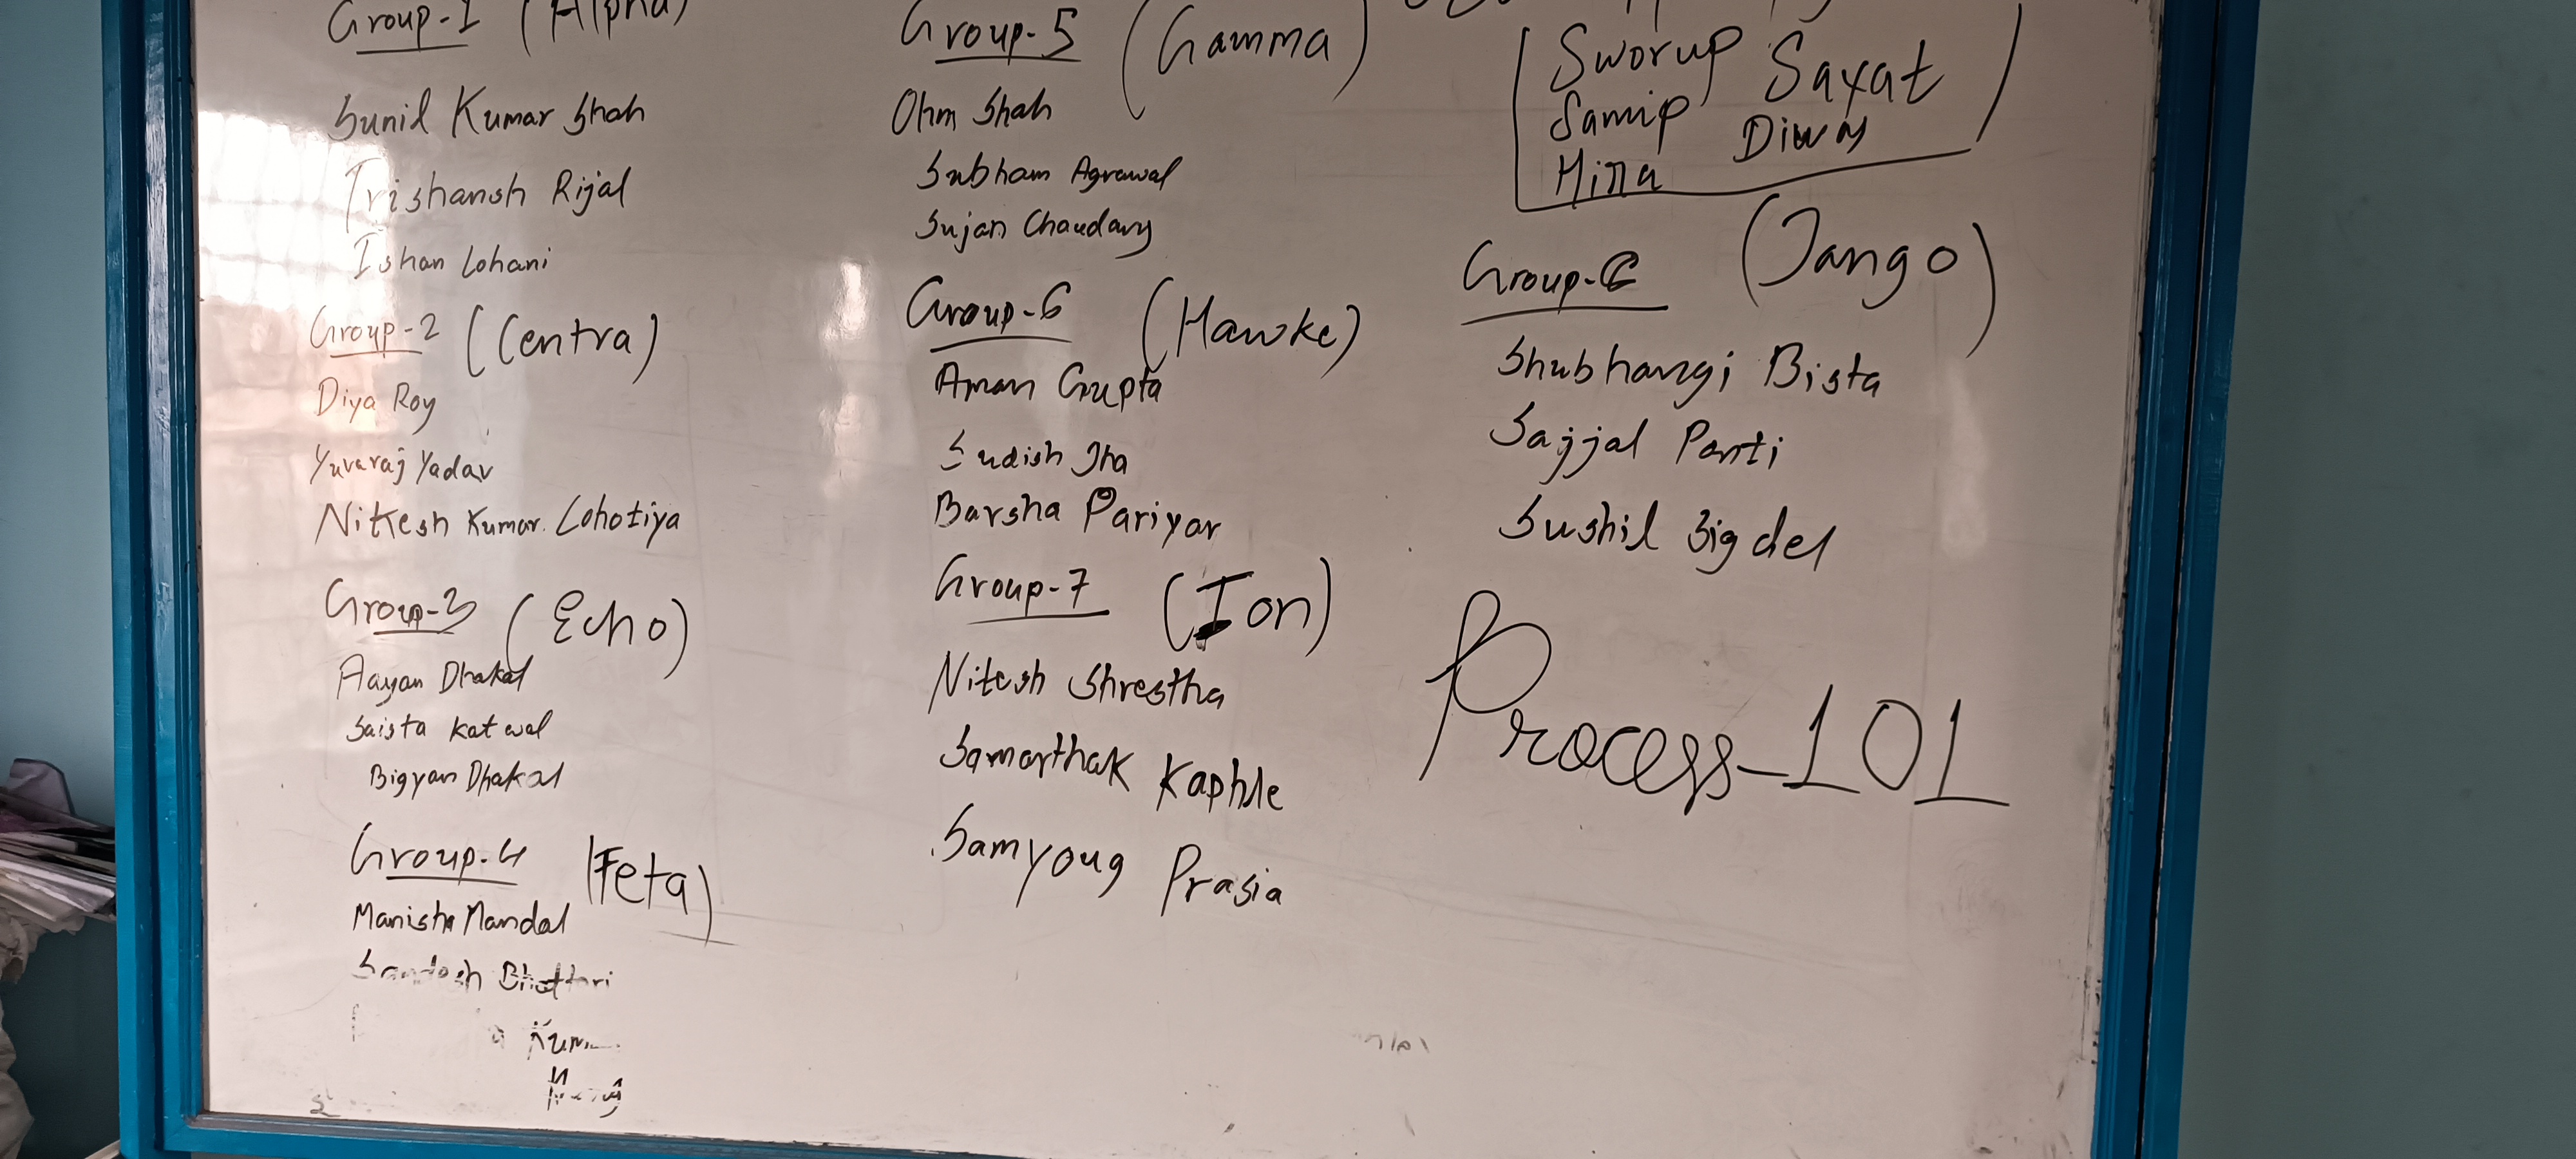 Group-1 (Alpha)
Sunil Kumar Shah
Trishansh Rijal
Ishan Lohani
Group-2 (Centra)
Diya Roy
Yuvaraj Yadav
Nitesh Kumar Lohotiya
Group-3 (Echo)
Aayan Dhakal
Saista Katwal
Bigyan Dhakal
Group-4 (Feta)
Manisha Mandal
Sandesh Bhattari
Group-5 (Gamma)
Ohm Shah
Subham Agrawal
Sujan Chaudary
Group-6 (Hawke)
Aman Gupta
Sudish Jha
Barsha Pariyar
Group-7 (Ion)
Nitesh Shrestha
Samarthak Kaphle
Samyoug Prasia
Sworup Sayat
Samip Diwas
Group- (Jango)
Shubhangi Bista
Sajjal Panti
Sushil Sigdel
Process-101